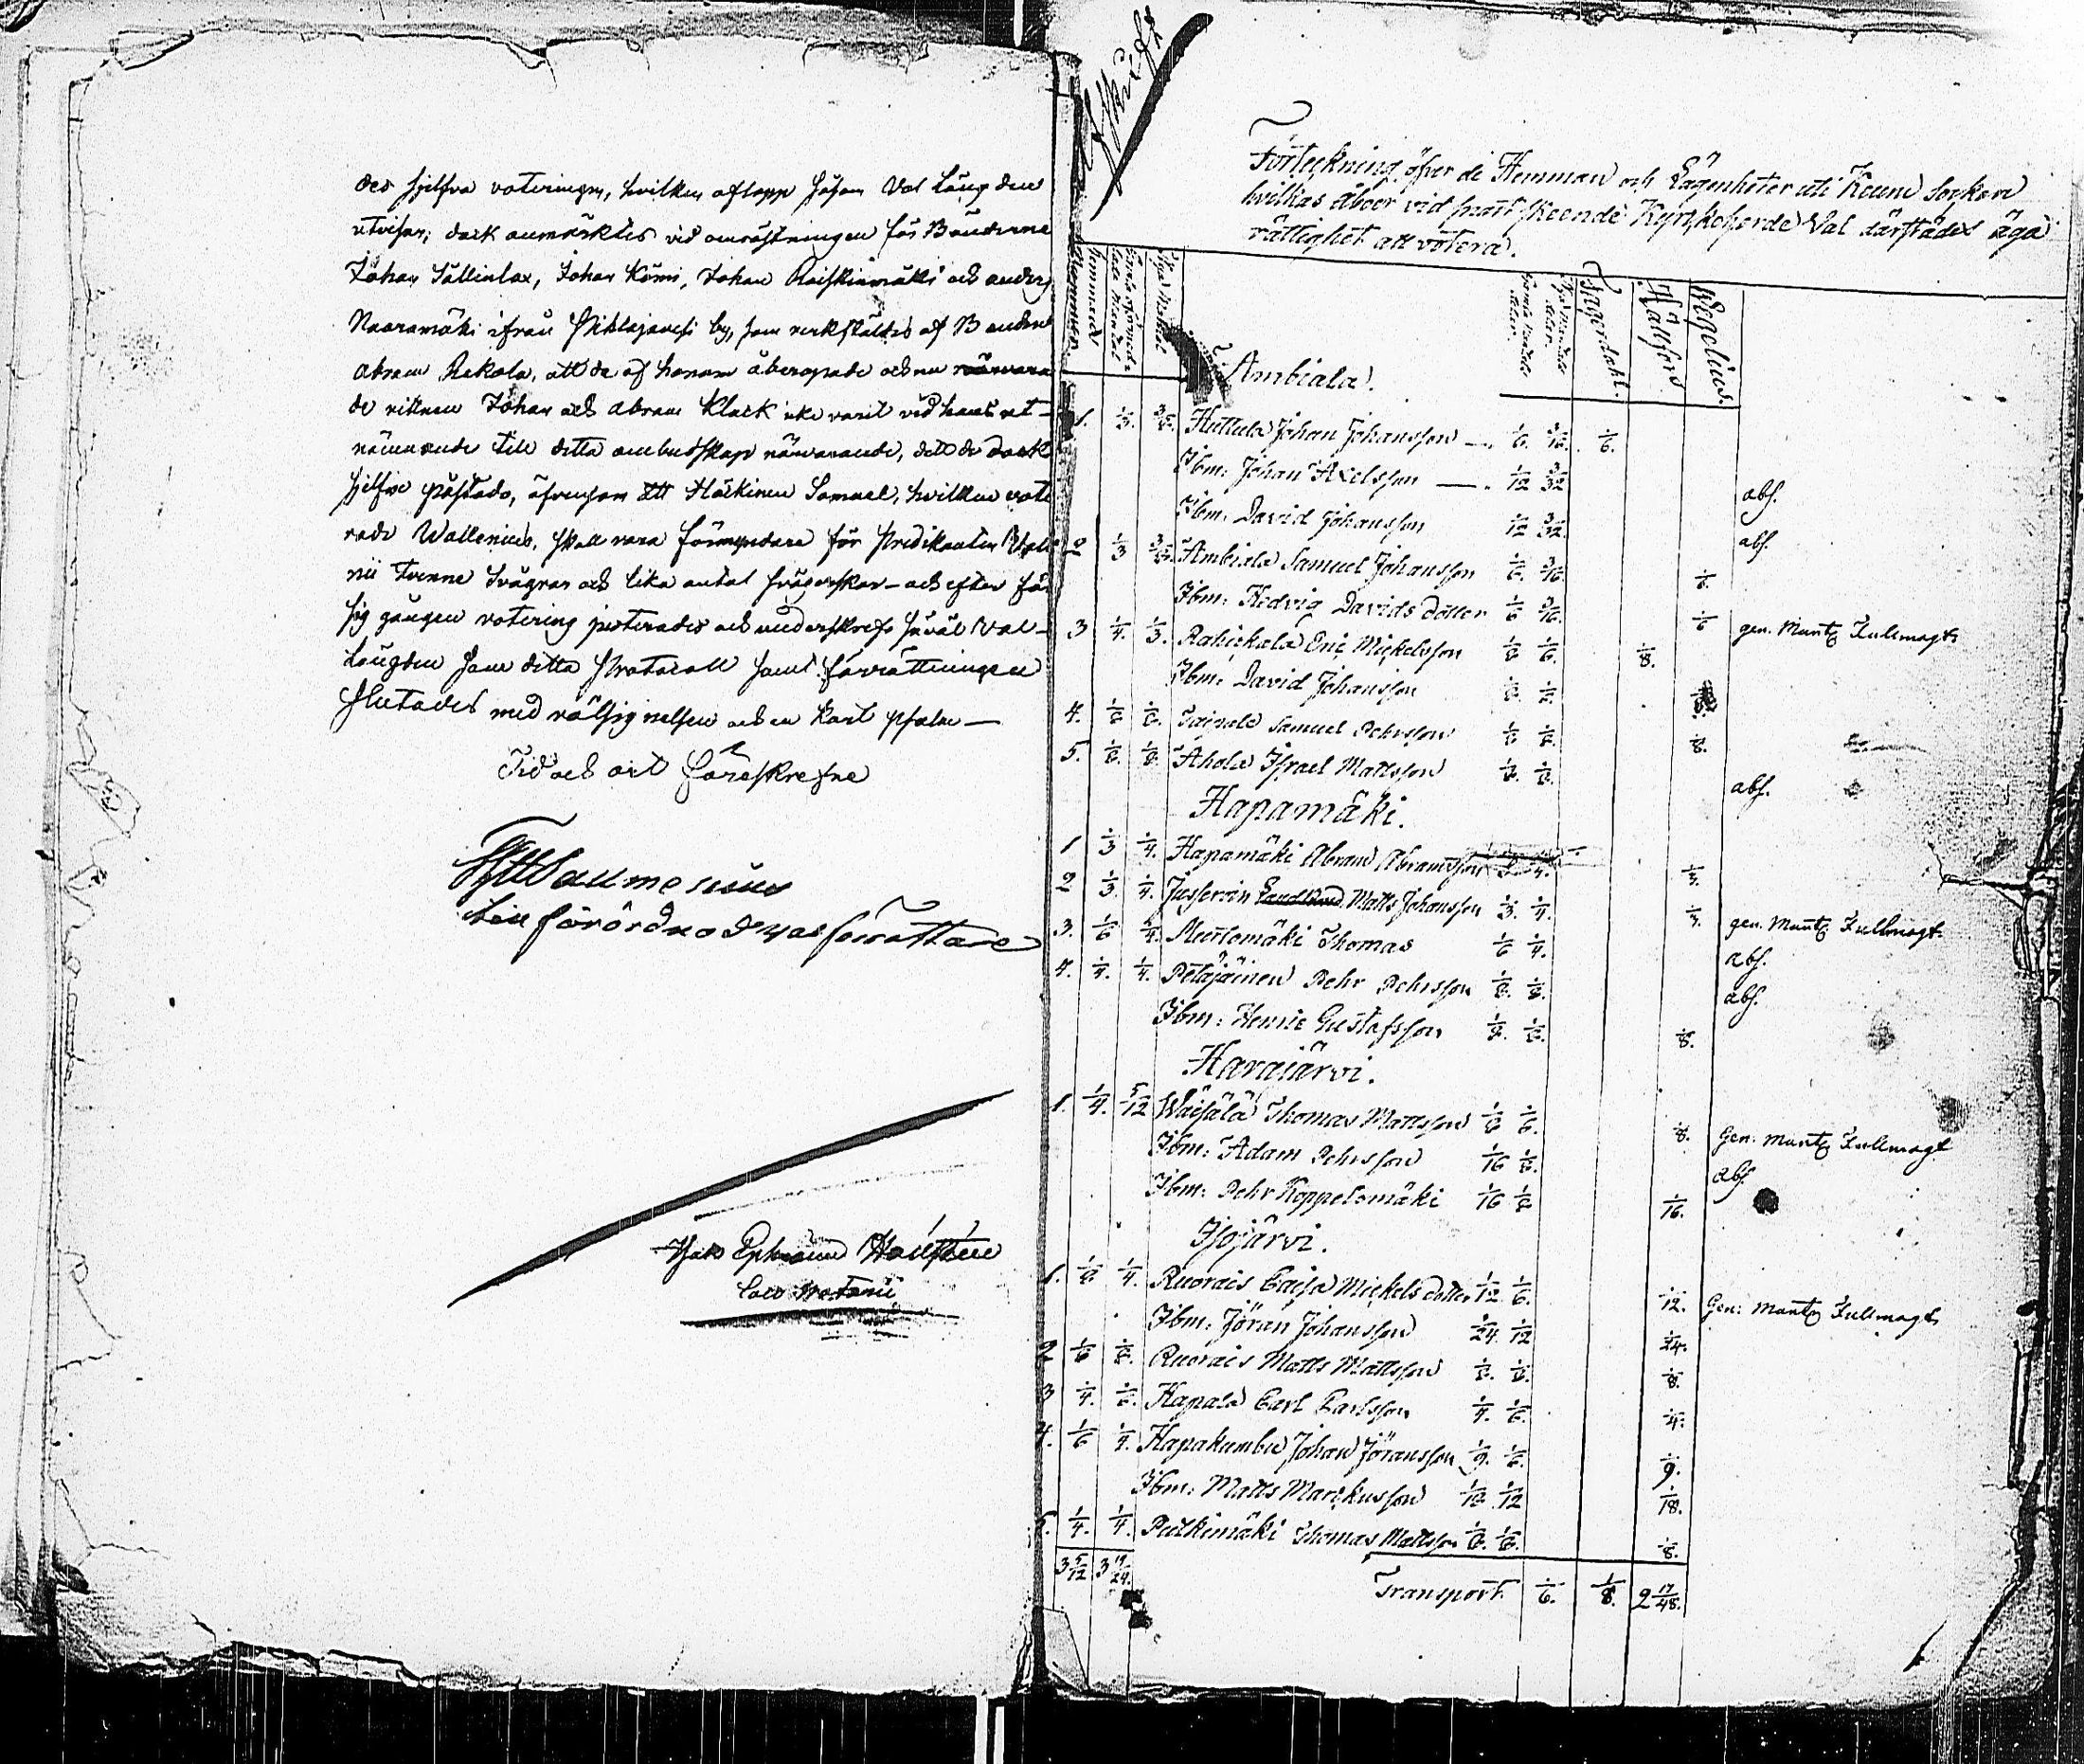 des sjelfva voteringen, hvilken aflopp såsom Val Längden
utvisar; dock anmärktes vid omröstningen för Bönderne
Johan Sällinlax, Johan Kömi, Johan Raiskinmäki och
Naaramäki ifrån by, som verkstältes af Bonden
Abram Rekola, att de af honom åberopade och nu närvara
de vittnen Johan och Abram Klack icke varit vid hans ut-
nämnande till detta ombudskap närvarande, det de dock
sjelfve påstodo, äfvensom att Häckinen Samuel, hvilken vote
rade Wallenius, skall vara förmyndare för Predikanten
nii tvenne Svågrar och lika antal svägerskor - och efter för
sig gången votering justerades och underskrefs såväl Val-
Längden som detta Protocoll samt förrättningen
slutades med välsignelsen och en kort psalm —
Tid och ort föreskrefne
förordnad förrättare
Ephraim
Loco Notarii
Afskrift
Förteckning öfver de Hemman och Lägenheter uti Keuru Socken
hvilkas åboer vid snart skeende Kyrkoherde Val därstädes äga
rättighet att votera.
Fagerdahl. Hällfors Wegelius.
Ambiala.
1. 1/3. Huttula Johan Johansson — 1/6. 3/16. 1/6.
Ibm: Johan Axelsson — 1/12 3/32 abs.
Ibm: David Johansson 1/12 3/32. abs.
2 1/3 Ambiala Samuel Johansson 1/6. 3/16. 1/6.
Ibm: Hedvig Davids dotter 1/6 3/16. 1/6 gen. Muntl. Fullmagt
3 1/4. 1/3. Rahickala Eric Mickelsson 1/8 1/6. 1/8.
Ibm: David Johansson 1/8. 1/6.
4. 1/8 1/8. Taipale Samuel Pehrsson 1/8 1/8. 1/8.
5. 1/8. 1/8. Ahola Israel Mattsson 1/8. 1/8. abs.
Hapamäki.
1 1/3 1/4. Hapamäki Abram Abramsson 1/3 1/4. 1/3.
2 1/3. 1/4. Jusserin Matts Johansson 1/3. 1/4. 1/3. gen. Muntl. Fullmagt.
3. 1/6 1/4. Murtomäki Thomas 1/6 1/4. abs.
4. 1/4. 1/4. Petäjäinen Pehr Pehrsson 1/8. 1/8. abs.
Ibm: Henric Gustafsson 1/8. 1/8. 1/8.
Harajärvi.
1. 1/4. 5/12 Wäisälä Thomas Mattsson 1/8 1/6. 1/8. Gen: muntl. Fullmagt
Ibm: Adam Pehrsson 1/16 1/8. abs
Ibm: Pehr Koppelomäki 1/16 1/8 1/16.
Isojärvi.
1. 1/8 1/4. Ruorais Caisa Mickels dotter 1/12 1/6. 1/12. Gen: muntl. Fullmagt
Ibm: Jöran Johansson 1/24. 1/12 1/24.
2 1/8 1/8. Ruorais Matts Mattsson 1/8. 1/8. 1/8.
3 1/4. 1/6. Hapala Carl Carlsson 1/4. 1/6. 1/4.
4. 1/6 1/4. Hapakumbu Johan Jöransson 1/9. 1/6. 1/9.
Ibm: Matts Marckusson 1/18 1/12 1/18.
5. 1/4. 1/4. Pulkimäki Thomas Mattsson 1/8. 1/8. 1/8.
3 5/12 3 19/24. Transport. 1/6. 1/8. 2 17/48.